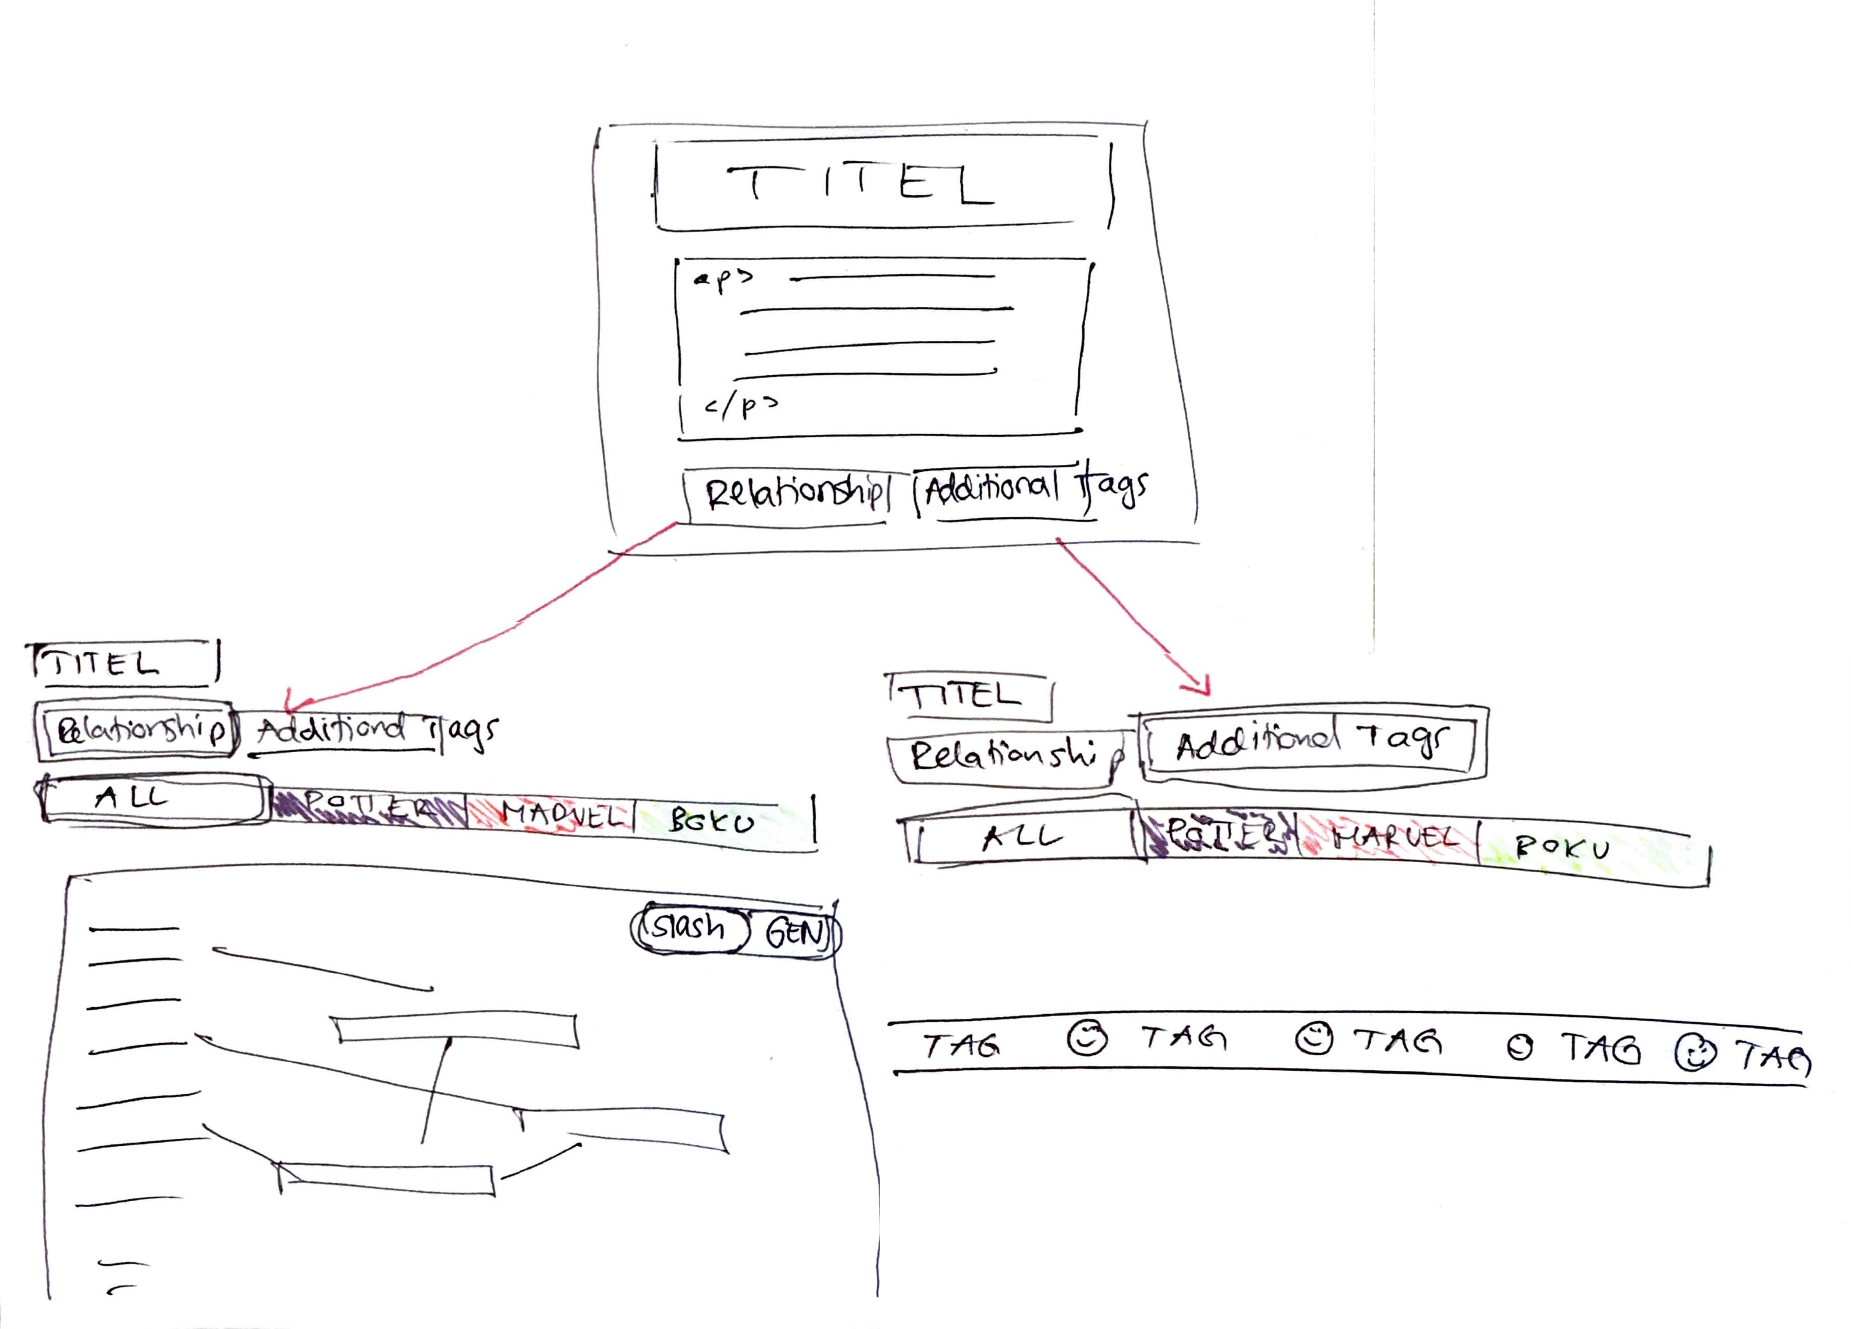 TITEL
<p>
</p>
Relationship Additional Tags
TITEL
Relationship Additional Tags
ALL POTTER MARVEL BOKU
slash GEN
TITEL
Relationship Additional Tags
ALL POTTER MARVEL BOKU
TAG TAG TAG TAG TAG